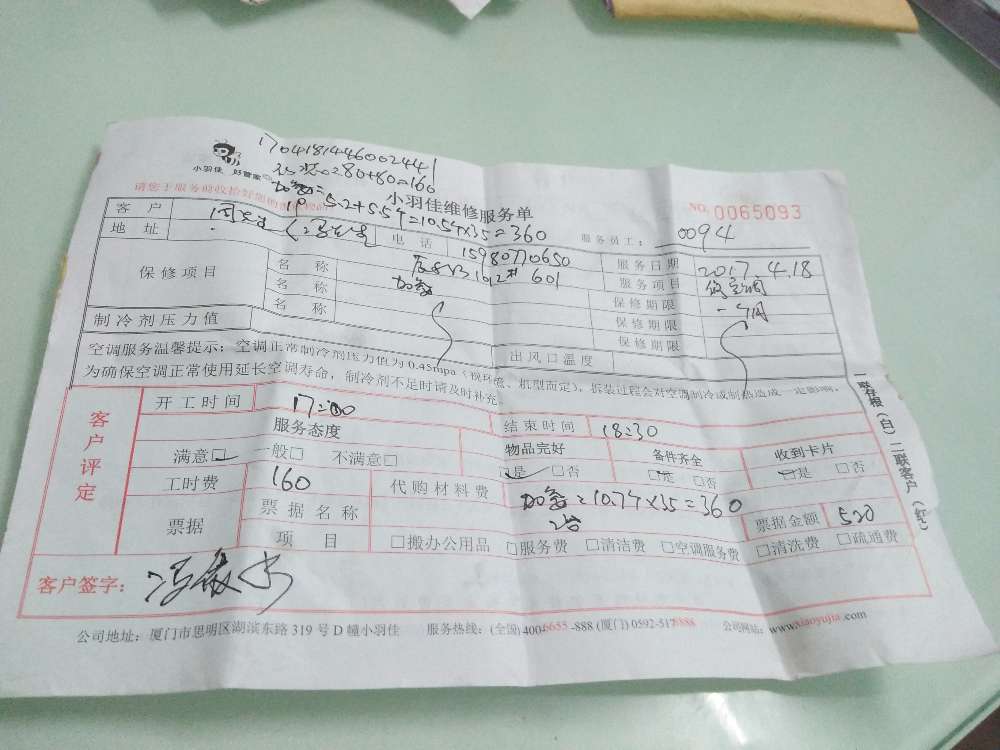 17041814460024441
280+80=160
小羽佳 好管家
小羽佳维修服务单
NO. 0065093
5.2+5.54=10.54×35=360
服务员工： 0094
客 户
电 话 15980770650
服务日期 2017.4.18
地 址
服务项目
保修项目 名 称 102# 601
保修期限 一个月
名 称 加氟
保修期限
名 称
保修期限
制冷剂压力值
出风口温度
空调服务温馨提示：空调正常制冷剂压力值为0.45mpa（视环境、机型而定），拆装过程会对空调制冷或制热造成一定影响，
为确保空调正常使用延长空调寿命，制冷剂不足时请及时补充。
客户评定
开工时间 17:00
结束时间 18:30
服务态度
物品完好
备件齐全
收到卡片
满意□ 一般□ 不满意□
□是 □否
□是 □否
□是 □否
工时费 160
代购材料费 加氟=10.74×35=360
2台
票据
票据名称
票据金额 520
项 目 □搬办公用品 □服务费 □清洁费 □空调服务费 □清洗费 □疏通费
客户签字：
一联存根（白）二联客户（红）
公司地址：厦门市思明区湖滨东路319号D幢小羽佳 服务热线：(全国) 400-6655-888 (厦门) 0592-5178888 公司网站：www.xiaoyujia.com